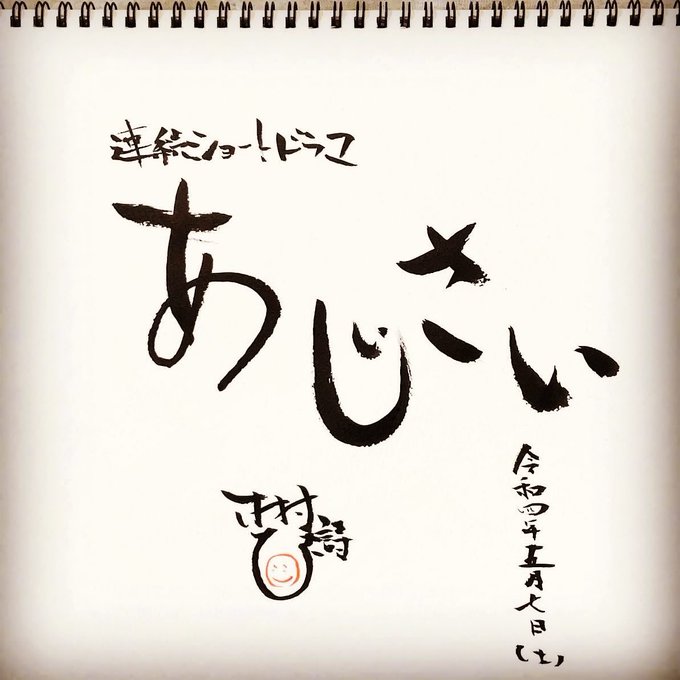 連続ショートドラマ
あじさい
木村
令和四年五月七日(土)